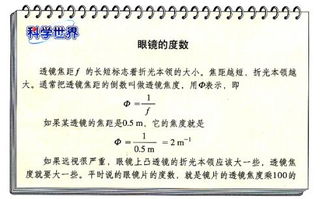 科学世界
眼镜的度数
透镜焦距f的长短标志着折光本领的大小。焦距越短，折光本领越
大。通常把透镜焦距的倒数叫做透镜焦度，用Φ表示，即
Φ = 1/f
如果某透镜的焦距是0.5 m，它的焦度就是
Φ = 1/0.5 m = 2 m⁻¹
如果远视很严重，眼镜上凸透镜的折光本领应该大一些，透镜焦
度就要大一些。平时说的眼镜片的度数，就是镜片的透镜焦度乘100的